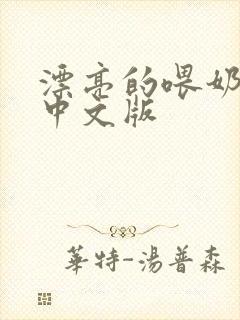 漂亮的喂奶
中文版
華特-湯普森